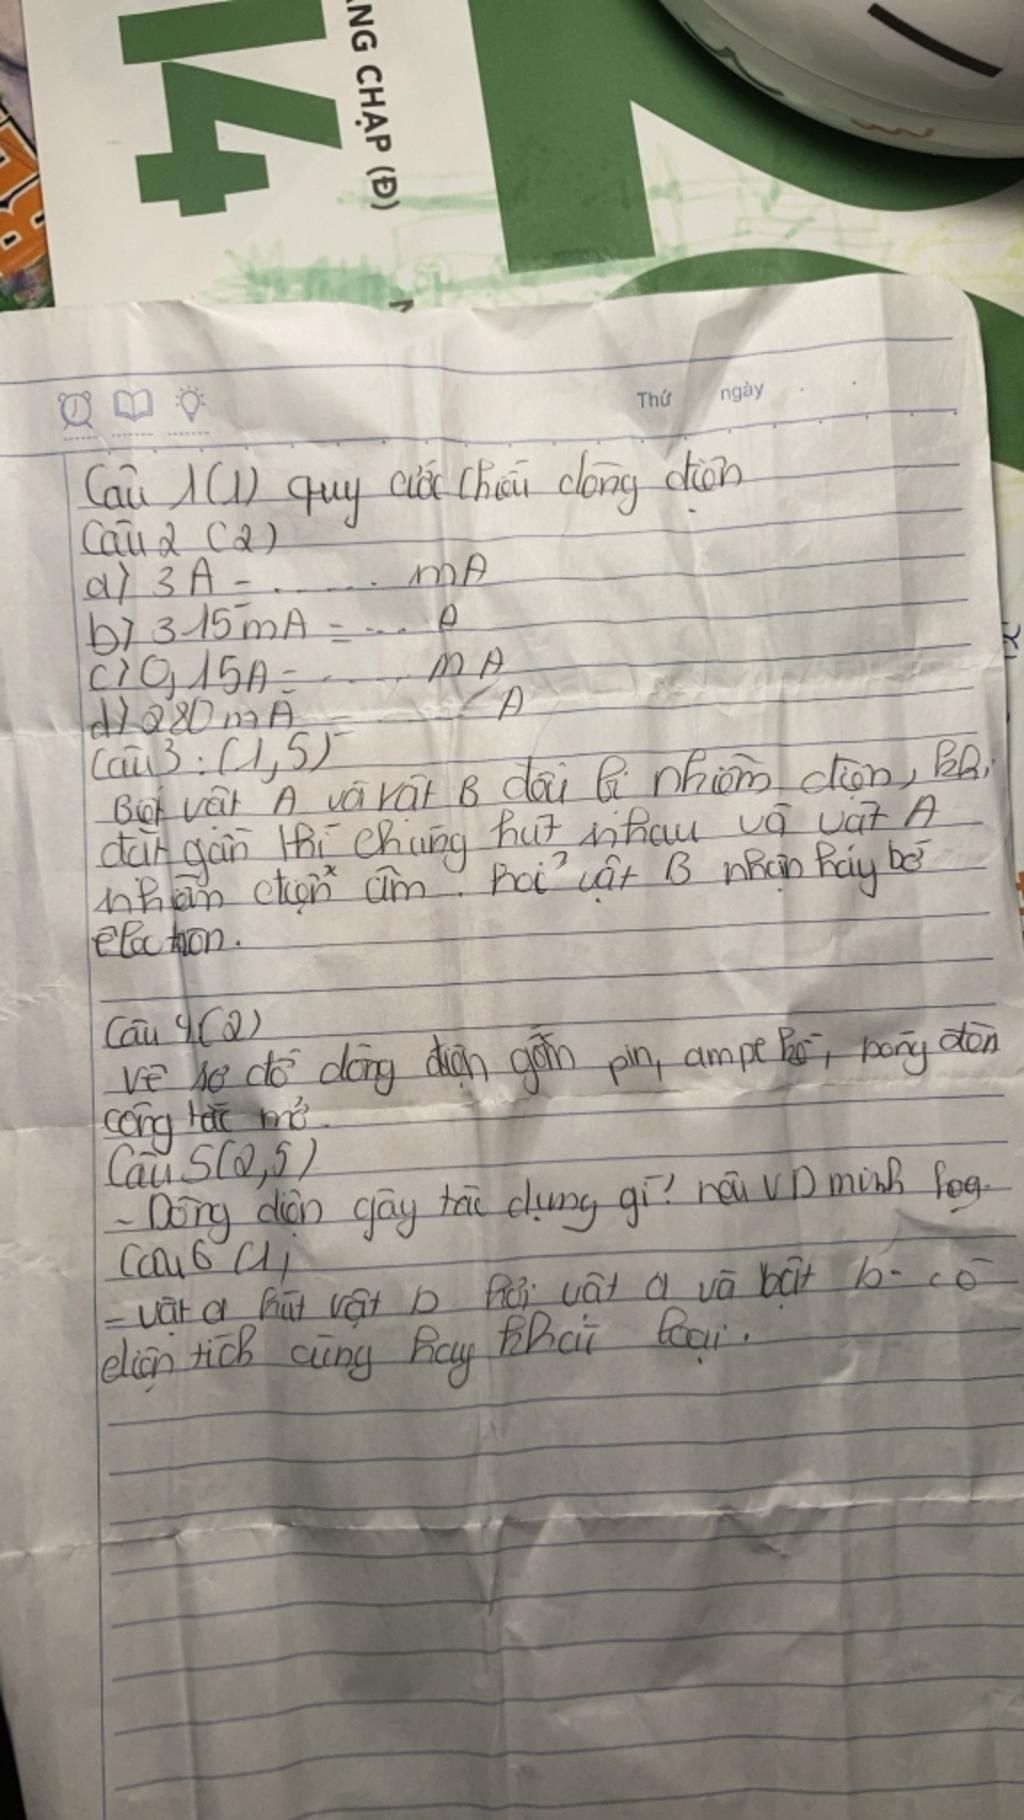 14
NG CHẠP (Đ)
Thứ ngày
Câu 1(1) quy ước chiều dòng điện
Câu 2 (2)
a) 3A = ....... mA
b) 315mA = .... A
c) 0,15A = ....... mA
d) 280mA = ....... A
Câu 3: (1,5)
Biết vật A và vật B đều bị nhiễm điện, khi
đặt gần thì chúng hút nhau và vật A
nhiễm điện âm. hỏi vật B nhận hay bớt
electron.
Câu 4(2)
vẽ sơ đồ dòng điện gồm pin, ampe kế, bóng đèn
công tắc mở.
Câu 5(2,5)
- Dòng điện gây tác dụng gì? nêu VD minh hoạ.
Câu 6 (1)
- vật a hút vật b hỏi vật a và bật b có
điện tích cùng hay khác loại.